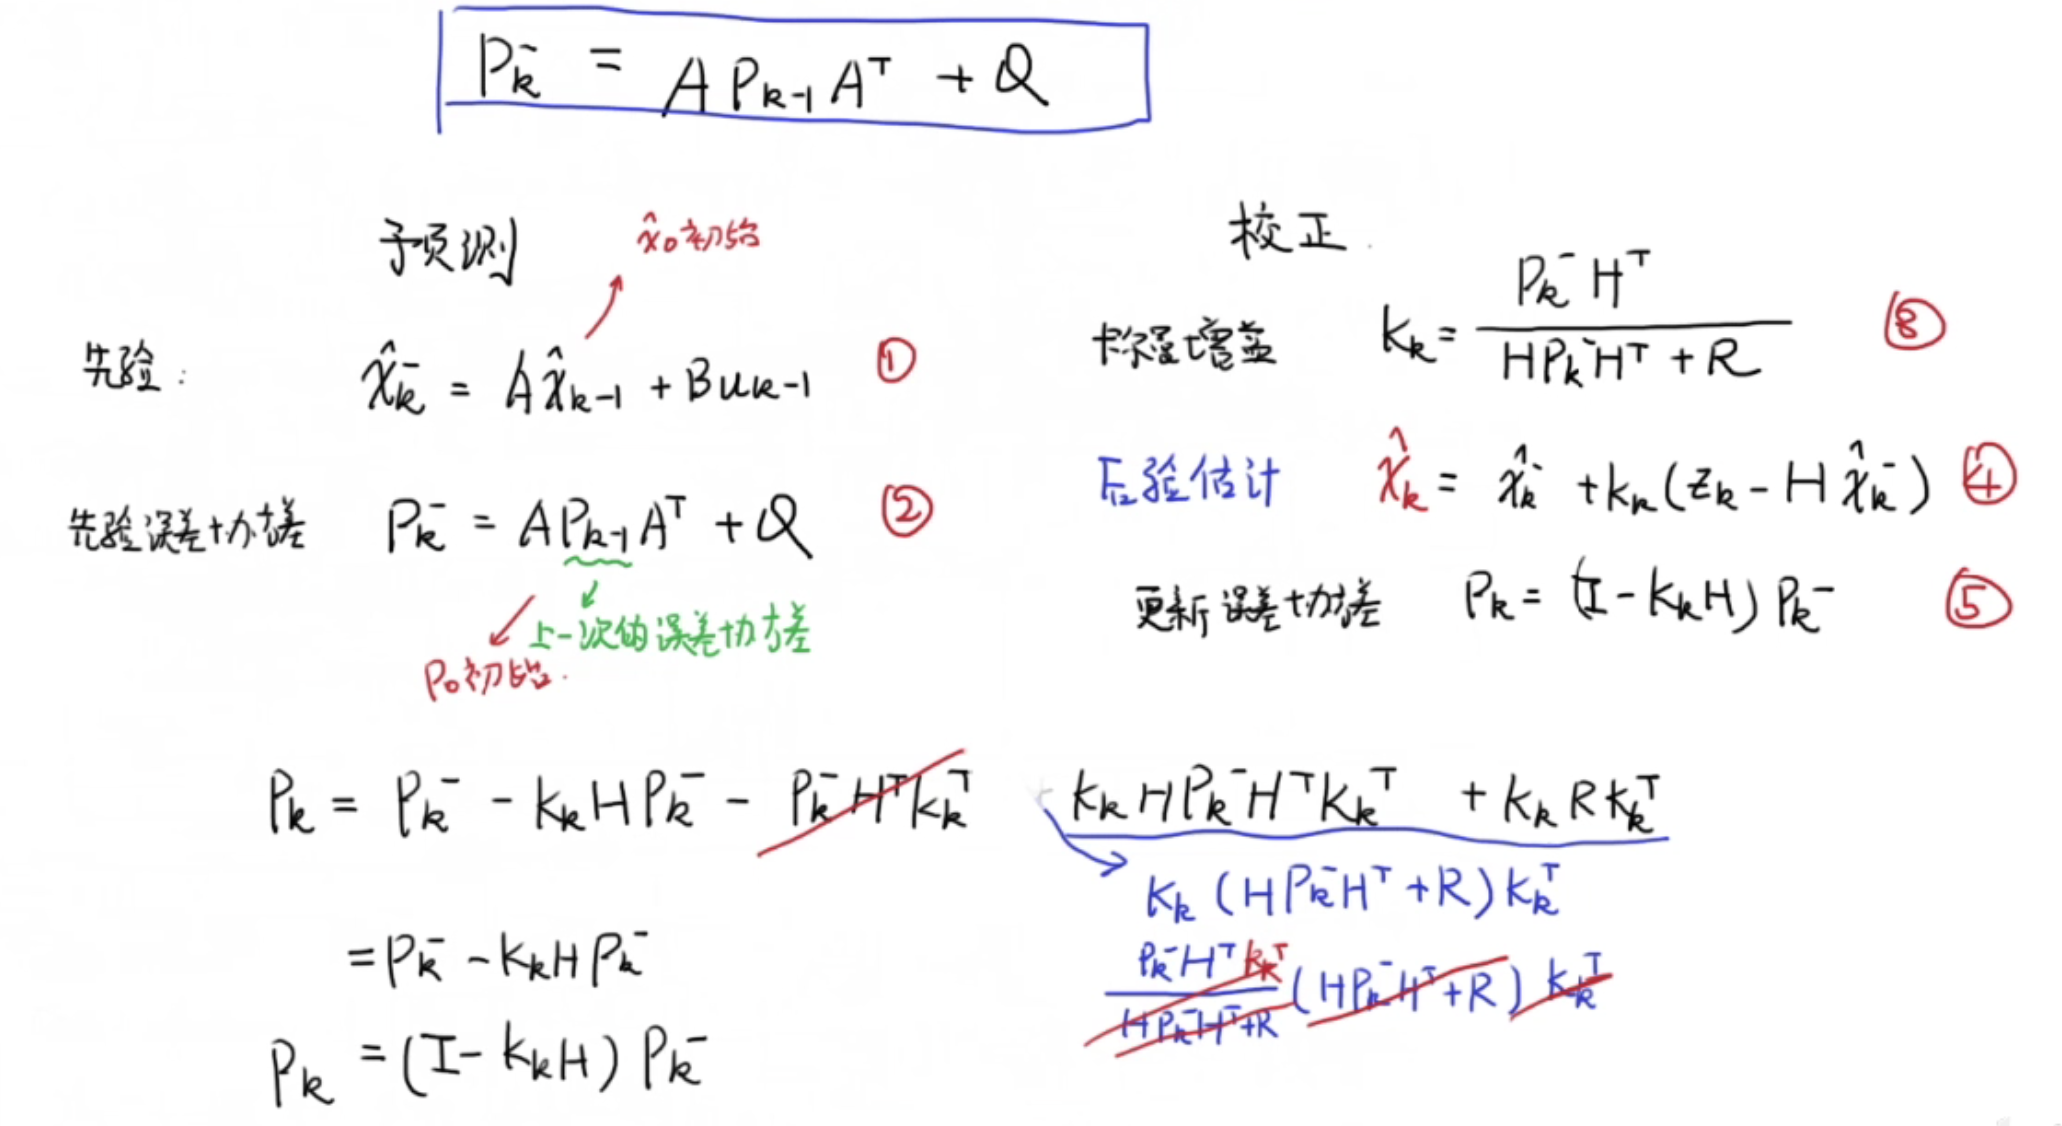 P_k^- = A P_{k-1} A^T + Q
预测
x̂_0 初始
先验:
x̂_k^- = A x̂_{k-1} + B u_{k-1} ①
先验误差协方差
P_k^- = A P_{k-1} A^T + Q ②
上一次的误差协方差
P_0 初始.
校正
卡尔曼增益
K_k = \frac{P_k^- H^T}{H P_k^- H^T + R} ③
后验估计
x̂_k = x̂_k^- + K_k (z_k - H x̂_k^-) ④
更新误差协方差
P_k = (I - K_k H) P_k^- ⑤
P_k = P_k^- - K_k H P_k^- - P_k^- H^T K_k^T + K_k H P_k^- H^T K_k^T + K_k R K_k^T
K_k (H P_k^- H^T + R) K_k^T
\frac{P_k^- H^T K_k^T}{H P_k^- H^T + R} (H P_k^- H^T + R) K_k^T
= P_k^- - K_k H P_k^-
P_k = (I - K_k H) P_k^-